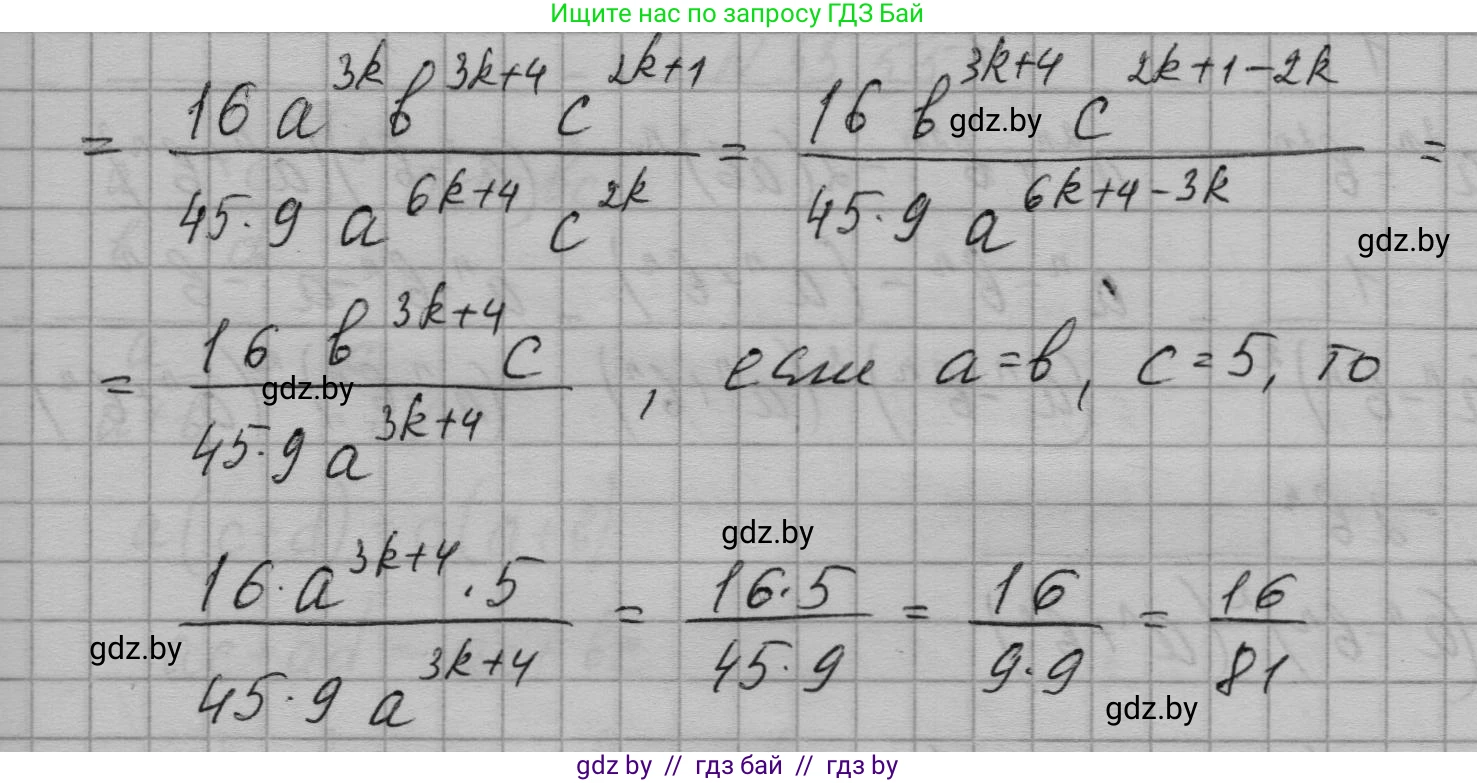 Ищите нас по запросу ГДЗ Бай
= 16 a^{3k} b^{3k+4} c^{2k+1} / 45·9 a^{6k+4} c^{2k} = 16 b^{3k+4} c^{2k+1-2k} / 45·9 a^{6k+4-3k} =
gdz.by
gdz.by
= 16 b^{3k+4} c / 45·9 a^{3k+4} , если a = b, c = 5, то
gdz.by
gdz.by
16·a^{3k+4}·5 / 45·9 a^{3k+4} = 16·5 / 45·9 = 16 / 9·9 = 16 / 81
gdz.by
gdz.by
gdz by // гдз бай // гдз by